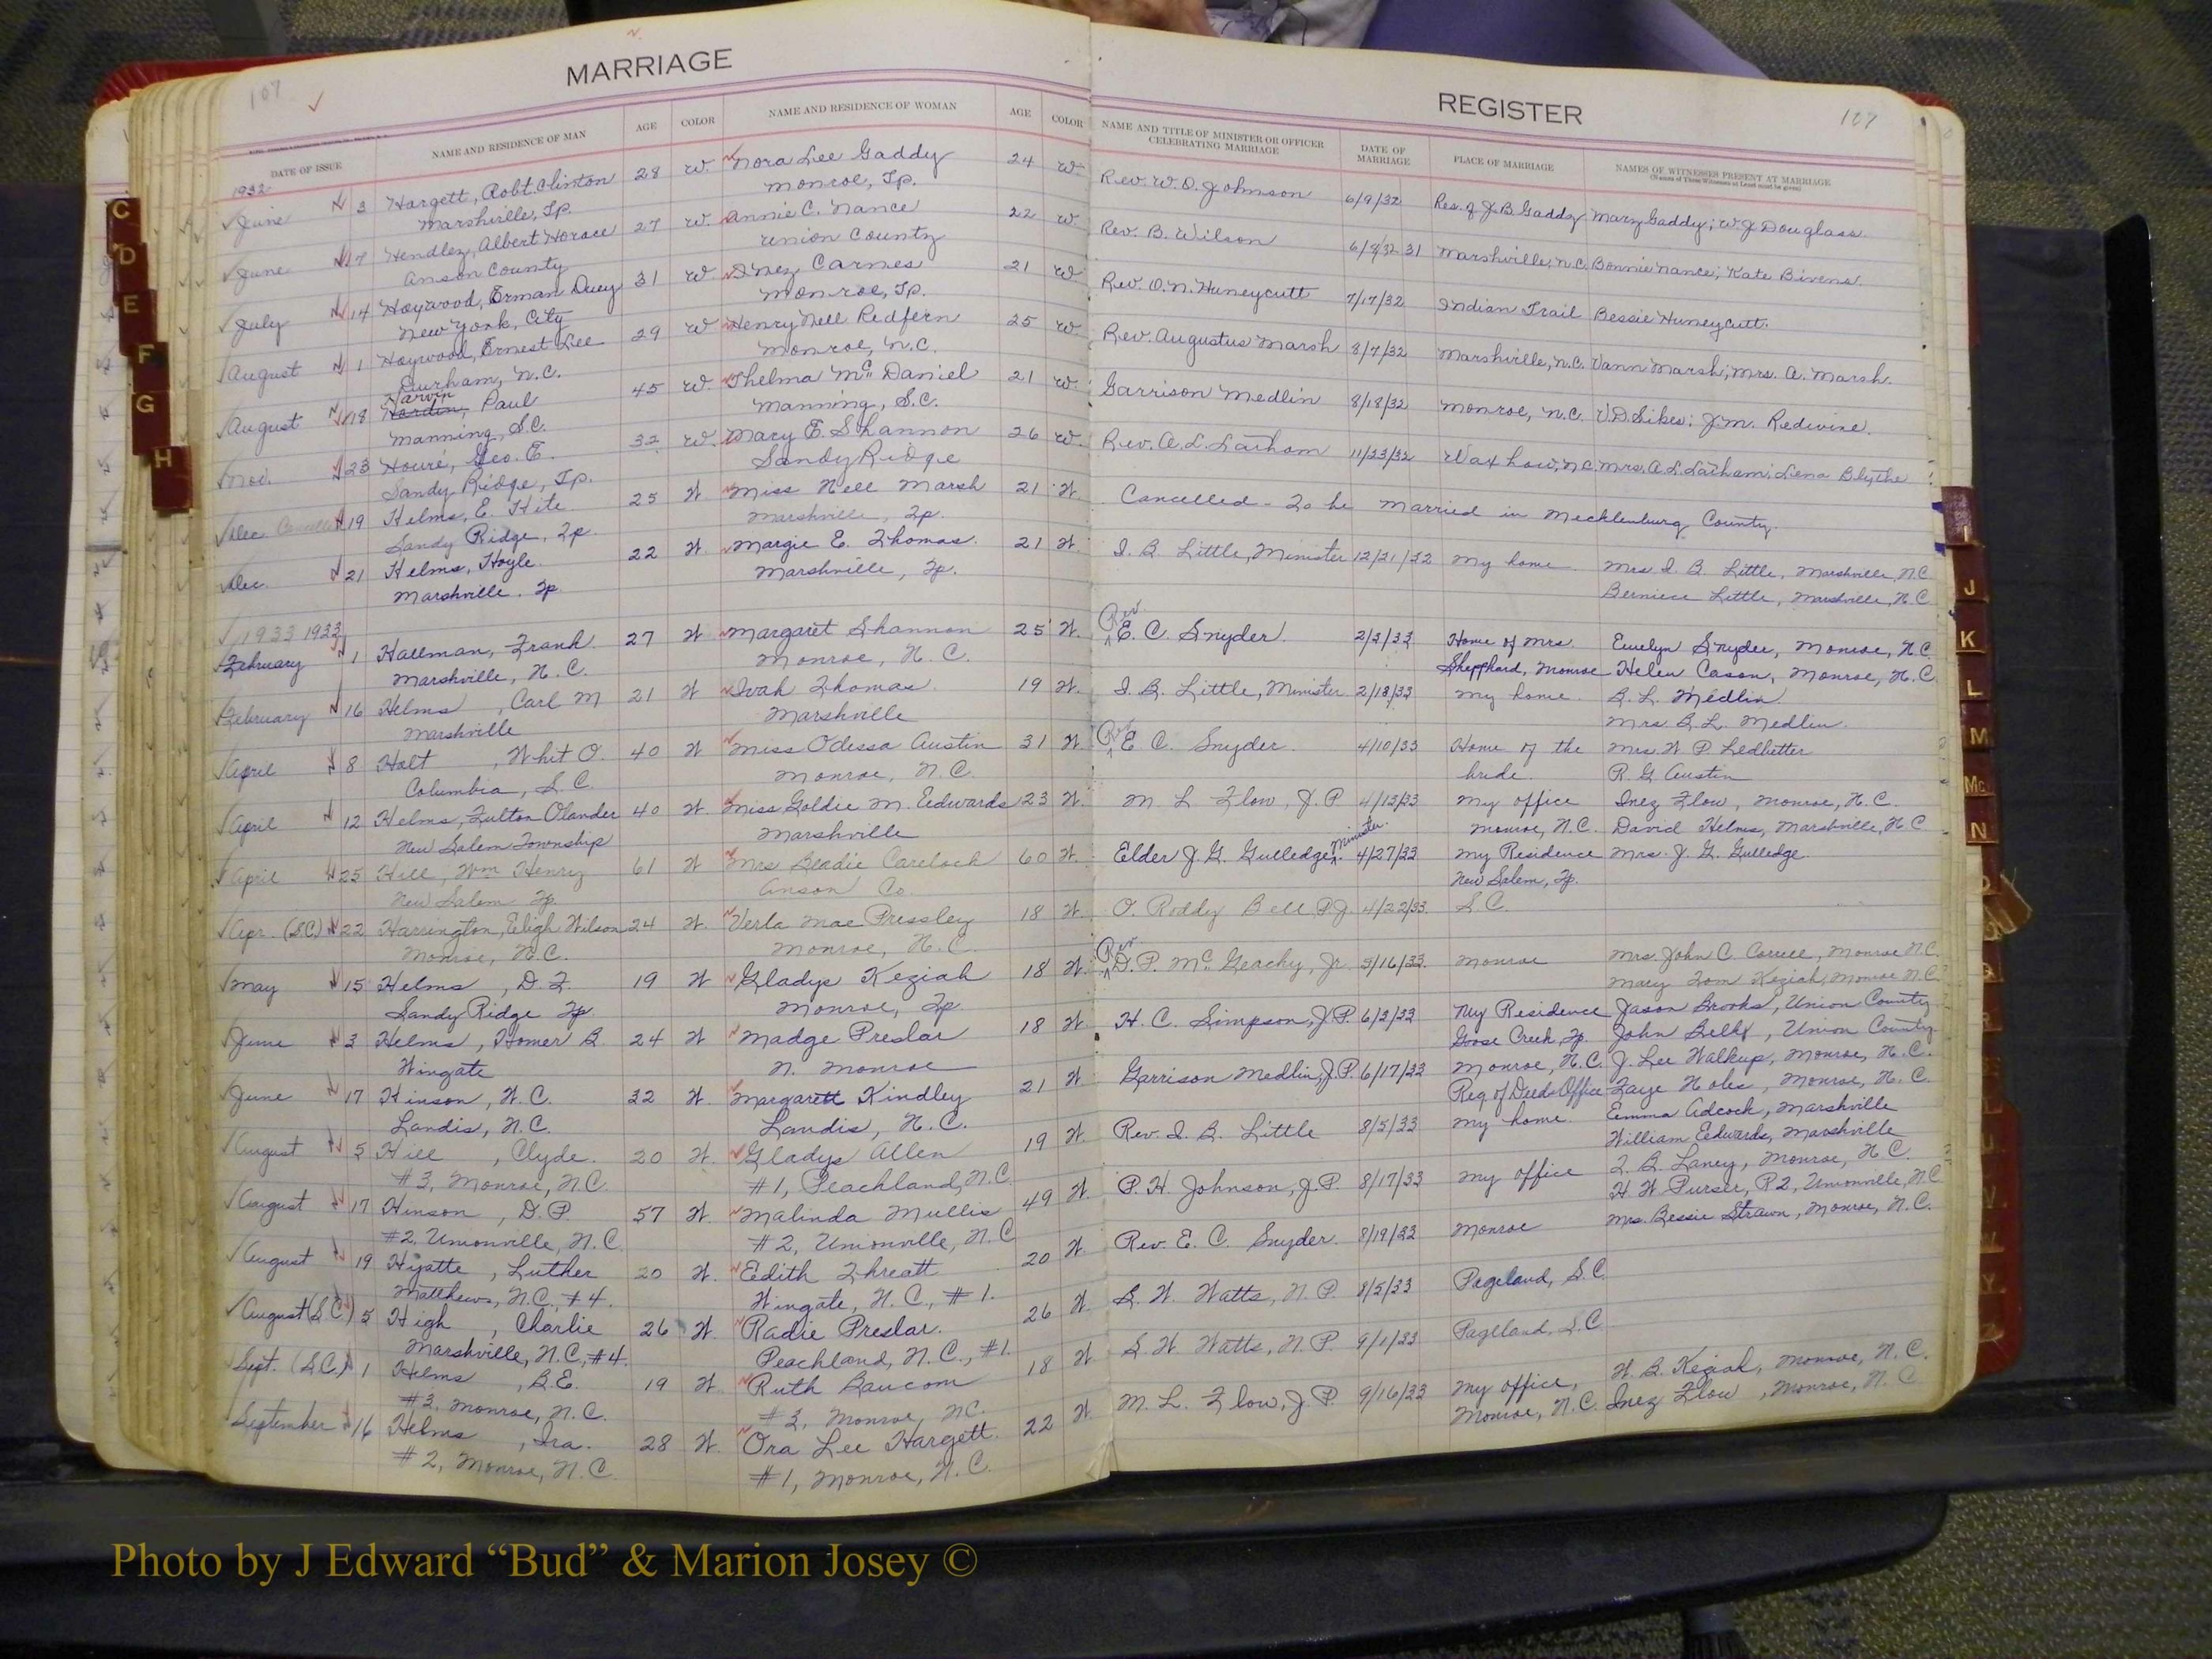 MARRIAGE
107
DATE OF ISSUE NAME AND RESIDENCE OF MAN AGE COLOR NAME AND RESIDENCE OF WOMAN AGE COLOR
1932
June 3 Hargett, Robt. Clinton 28 W. Nora Lee Gaddy 24 W.
Marshville, Tp. Monroe, Tp.
June 7 Hendley, Albert Horace 27 W. Annie C. Nance 22 W.
Anson County Union County
July 14 Haywood, Erman Duey 31 W Inez Carnes 21 W
New York, City Monroe, Tp.
August 1 Haywood, Ernest Lee 29 W Henry Nell Redfern 25 W.
Durham, N.C. Monroe, N.C.
Harvin
August 18 Hardin, Paul 45 W. Thelma McDaniel 21 W.
Manning, S.C. Manning, S.C.
Nov. 23 Houre, Geo. E. 32 W. Mary E. Shannon 26 W.
Sandy Ridge, Tp. Sandy Ridge
Dec. Cancelled 19 Helms, E. Hite 25 W Miss Nell Marsh 21 W.
Sandy Ridge, Tp. Marshville, Tp.
Dec. 21 Helms, Hoyle 22 W. Margie E. Thomas 21 W.
Marshville. Tp. Marshville, Tp.
1933 1933
February 1 Hallman, Frank 27 W Margaret Shannon 25 W.
Marshville, N.C. Monroe, N.C.
February 16 Helms, Carl M 21 W Ivah Thomas 19 W.
Marshville Marshville
April 8 Holt, Whit O. 40 W Miss Odessa Austin 31 W
Columbia, S.C. Monroe, N.C.
April 12 Helms, Fulton Olander 40 W. Miss Goldie M. Edwards 23 W.
New Salem Township Marshville
April 25 Hill, Wm Henry 61 W Mrs Beadie Carelock 60 W.
New Salem Tp. Anson Co.
Apr. (S.C) 22 Harrington, Eligh Wilson 24 W. Verla Mae Pressley 18 W.
Monroe, N.C. Monroe, N.C.
May 15 Helms, D. F. 19 W Gladys Keziah 18 W.
Sandy Ridge Tp. Monroe, Tp
June 3 Helms, Homer B. 24 W Madge Preslar 18 W
Wingate N. Monroe
June 17 Hinson, W. C. 32 W. Margarett Kindley 21 W
Landis, N.C. Landis, N.C.
August 5 Hill, Clyde. 20 W. Gladys Allen 19 W.
#3, Monroe, N.C. #1, Peachland, N.C.
August 17 Hinson, D. P. 57 W. Malinda Mullis 49 W.
#2, Unionville, N.C. #2, Unionville, N.C
August 19 Hyatte, Luther 20 W. Edith Threatt 20 W.
Matthews, N.C., #4. Wingate, N.C., #1.
August (S.C.) 5 High, Charlie 26 W. Radie Preslar. 26 W.
Marshville, N.C., #4. Peachland, N.C., #1.
Sept. (S.C.) 1 Helms, B.E. 19 W Ruth Baucom 18 W
#3, Monroe, N.C. #3, Monroe, N.C.
September 16 Helms, Ira. 28 W. Ora Lee Hargett. 22 W.
#2, Monroe, N.C. #1, Monroe, N.C.
REGISTER
107
NAME AND TITLE OF MINISTER OR OFFICER CELEBRATING MARRIAGE DATE OF MARRIAGE PLACE OF MARRIAGE NAMES OF WITNESSES PRESENT AT MARRIAGE
(Names of Three Witnesses at Least must be given)
Rev. W. O. Johnson 6/9/32 Res. of J.B. Gaddy Mary Gaddy; W.J. Douglass
Rev. B. Wilson 6/8/32 31 Marshville, N.C. Bonnie Nance; Kate Bivens
Rev. O. N. Huneycutt 7/17/32 Indian Trail Bessie Huneycutt.
Rev. Augustus Marsh 8/7/32 Marshville, N.C. Vann Marsh; Mrs. A. Marsh.
Garrison Medlin 8/18/32 Monroe, N.C. V.D. Sikes; J.M. Redwine.
Rev. A. L. Latham 11/23/32 Waxhaw, N.C. Mrs. A. L. Latham; Lena Blythe
Cancelled - To be married in Mecklenburg County.
I. B. Little, Minister 12/21/32 My home Mrs I. B. Little, Marshville, N.C.
Berniece Little, Marshville, N.C
Rev E. C. Snyder. 2/2/33 Home of Mrs. Evelyn Snyder, Monroe, N.C
Shepphard, Monroe Helen Cason, Monroe, N.C.
I. B. Little, Minister 2/18/33 My home B. L. Medlin
Mrs B. L. Medlin.
Rev E. C. Snyder. 4/10/33 Home of the Mrs. W. P. Ledbetter
bride. R. G. Austin
M. L. Flow, J. P 4/13/33 My office Inez Flow, Monroe, N.C.
Monroe, N.C. David Helms, Marshville, N.C
Elder J. G. Gulledge, Minister 4/27/33 My Residence Mrs. J. G. Gulledge
New Salem, Tp.
O. Roddy Bell P.J. 4/22/33 S.C.
Rev D. P. McGeachy, Jr. 5/16/33. Monroe Mrs. John C. Correll, Monroe N.C.
Mary Tom Keziah, Monroe N.C.
H. C. Simpson, J.P. 6/3/33 My Residence Jason Brooks, Union County
Goose Creek, Tp. John Belk, Union County
Garrison Medlin, J.P. 6/17/33 Monroe, N.C. J. Lee Walkup, Monroe, N.C.
Reg of Deeds Office Faye Noles, Monroe, N.C.
Rev. I. B. Little 8/5/33 My home. Emma Adcock, Marshville
William Edwards, Marshville
P. H. Johnson, J.P. 8/17/33 My office T. B. Laney, Monroe, N.C.
H W Purser, R2, Unionville, N.C
Rev. E. C. Snyder. 8/19/33 Monroe Mrs. Bessie Strawn, Monroe, N.C.
S. W. Watts, N. P. 8/5/33 Pageland, S.C.
S. W. Watts, N. P. 9/1/33 Pageland, S.C
M. L. Flow, J. P. 9/16/33 My office, W. B. Keziah, Monroe, N.C.
Monroe, N.C. Inez Flow, Monroe, N.C.
C
D
E
F
G
H
I
J
K
L
M
Mc
N
Photo by J Edward “Bud” & Marion Josey ©